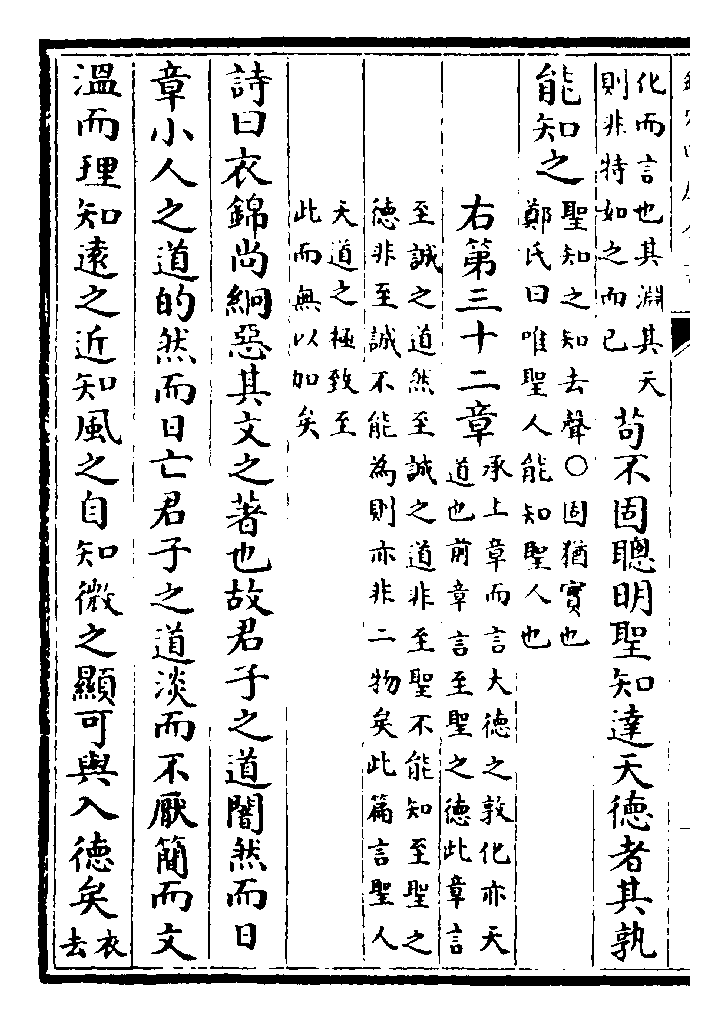 化而言也其淵其天
則非特如之而已
苟不固聰明聖知達天德者其孰
能知之
聖知之知去聲○固猶實也
鄭氏曰唯聖人能知聖人也
右第三十二章
承上章而言大德之敦化亦天
道也前章言至聖之德此章言
至誠之道然至誠之道非至聖不能知至聖之
德非至誠不能為則亦非二物矣此篇言聖人
天道之極致至
此而無以加矣
詩曰衣錦尚絅惡其文之著也故君子之道闇然而日
章小人之道的然而日亡君子之道淡而不厭簡而文
溫而理知遠之近知風之自知微之顯可與入德矣
衣
去